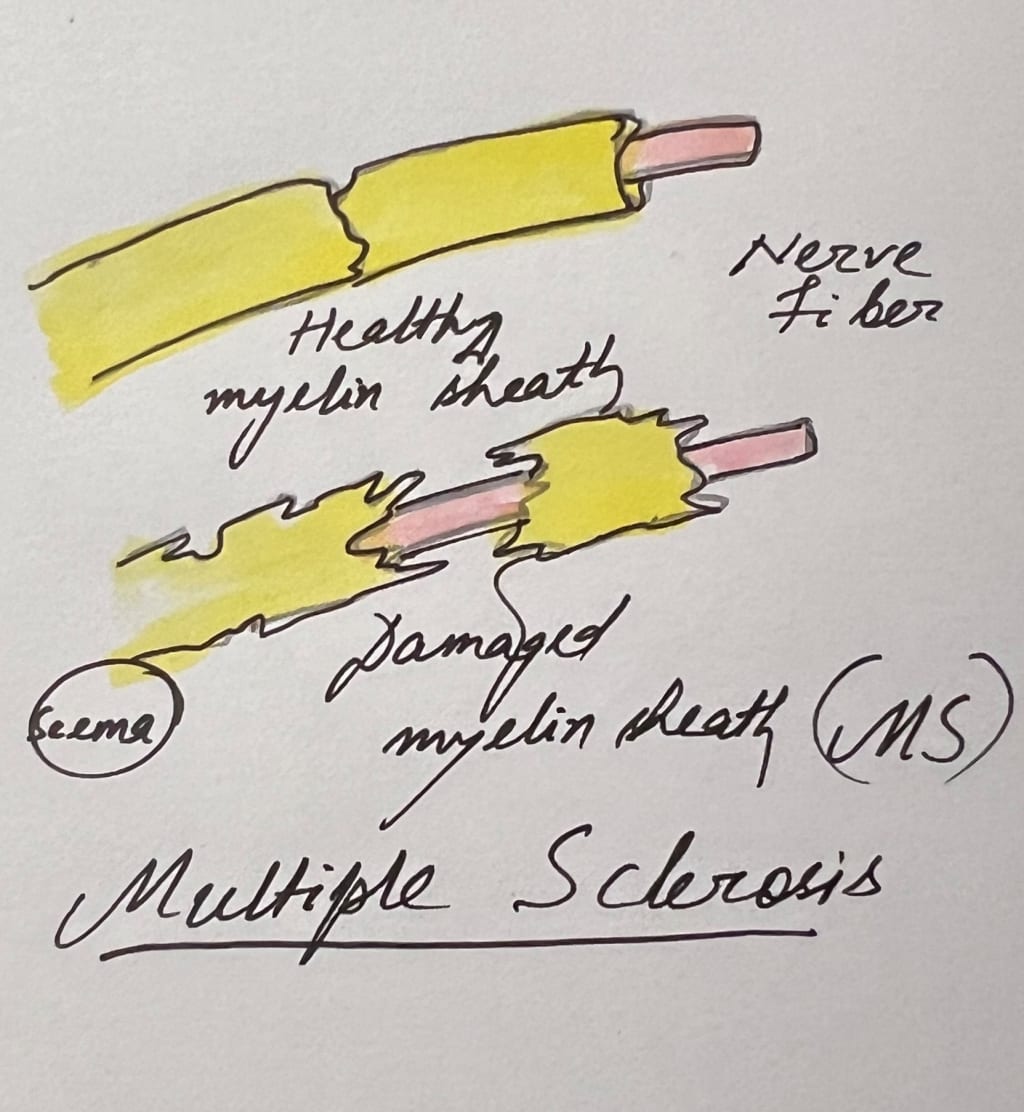 Nerve
Fiber
Healthy
myelin sheath
Damaged
myelin sheath (MS)
Seema
Multiple Sclerosis